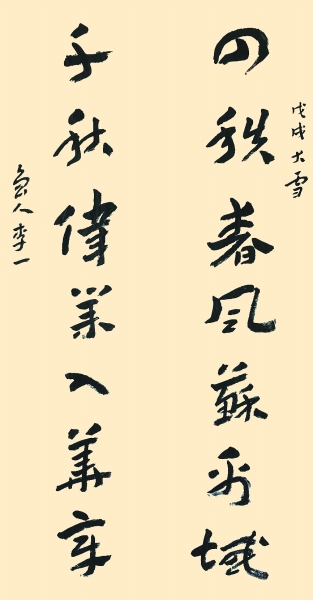 戊戌大雪
四秩春風蘇禹域
千秋偉業入華章
魯人李一